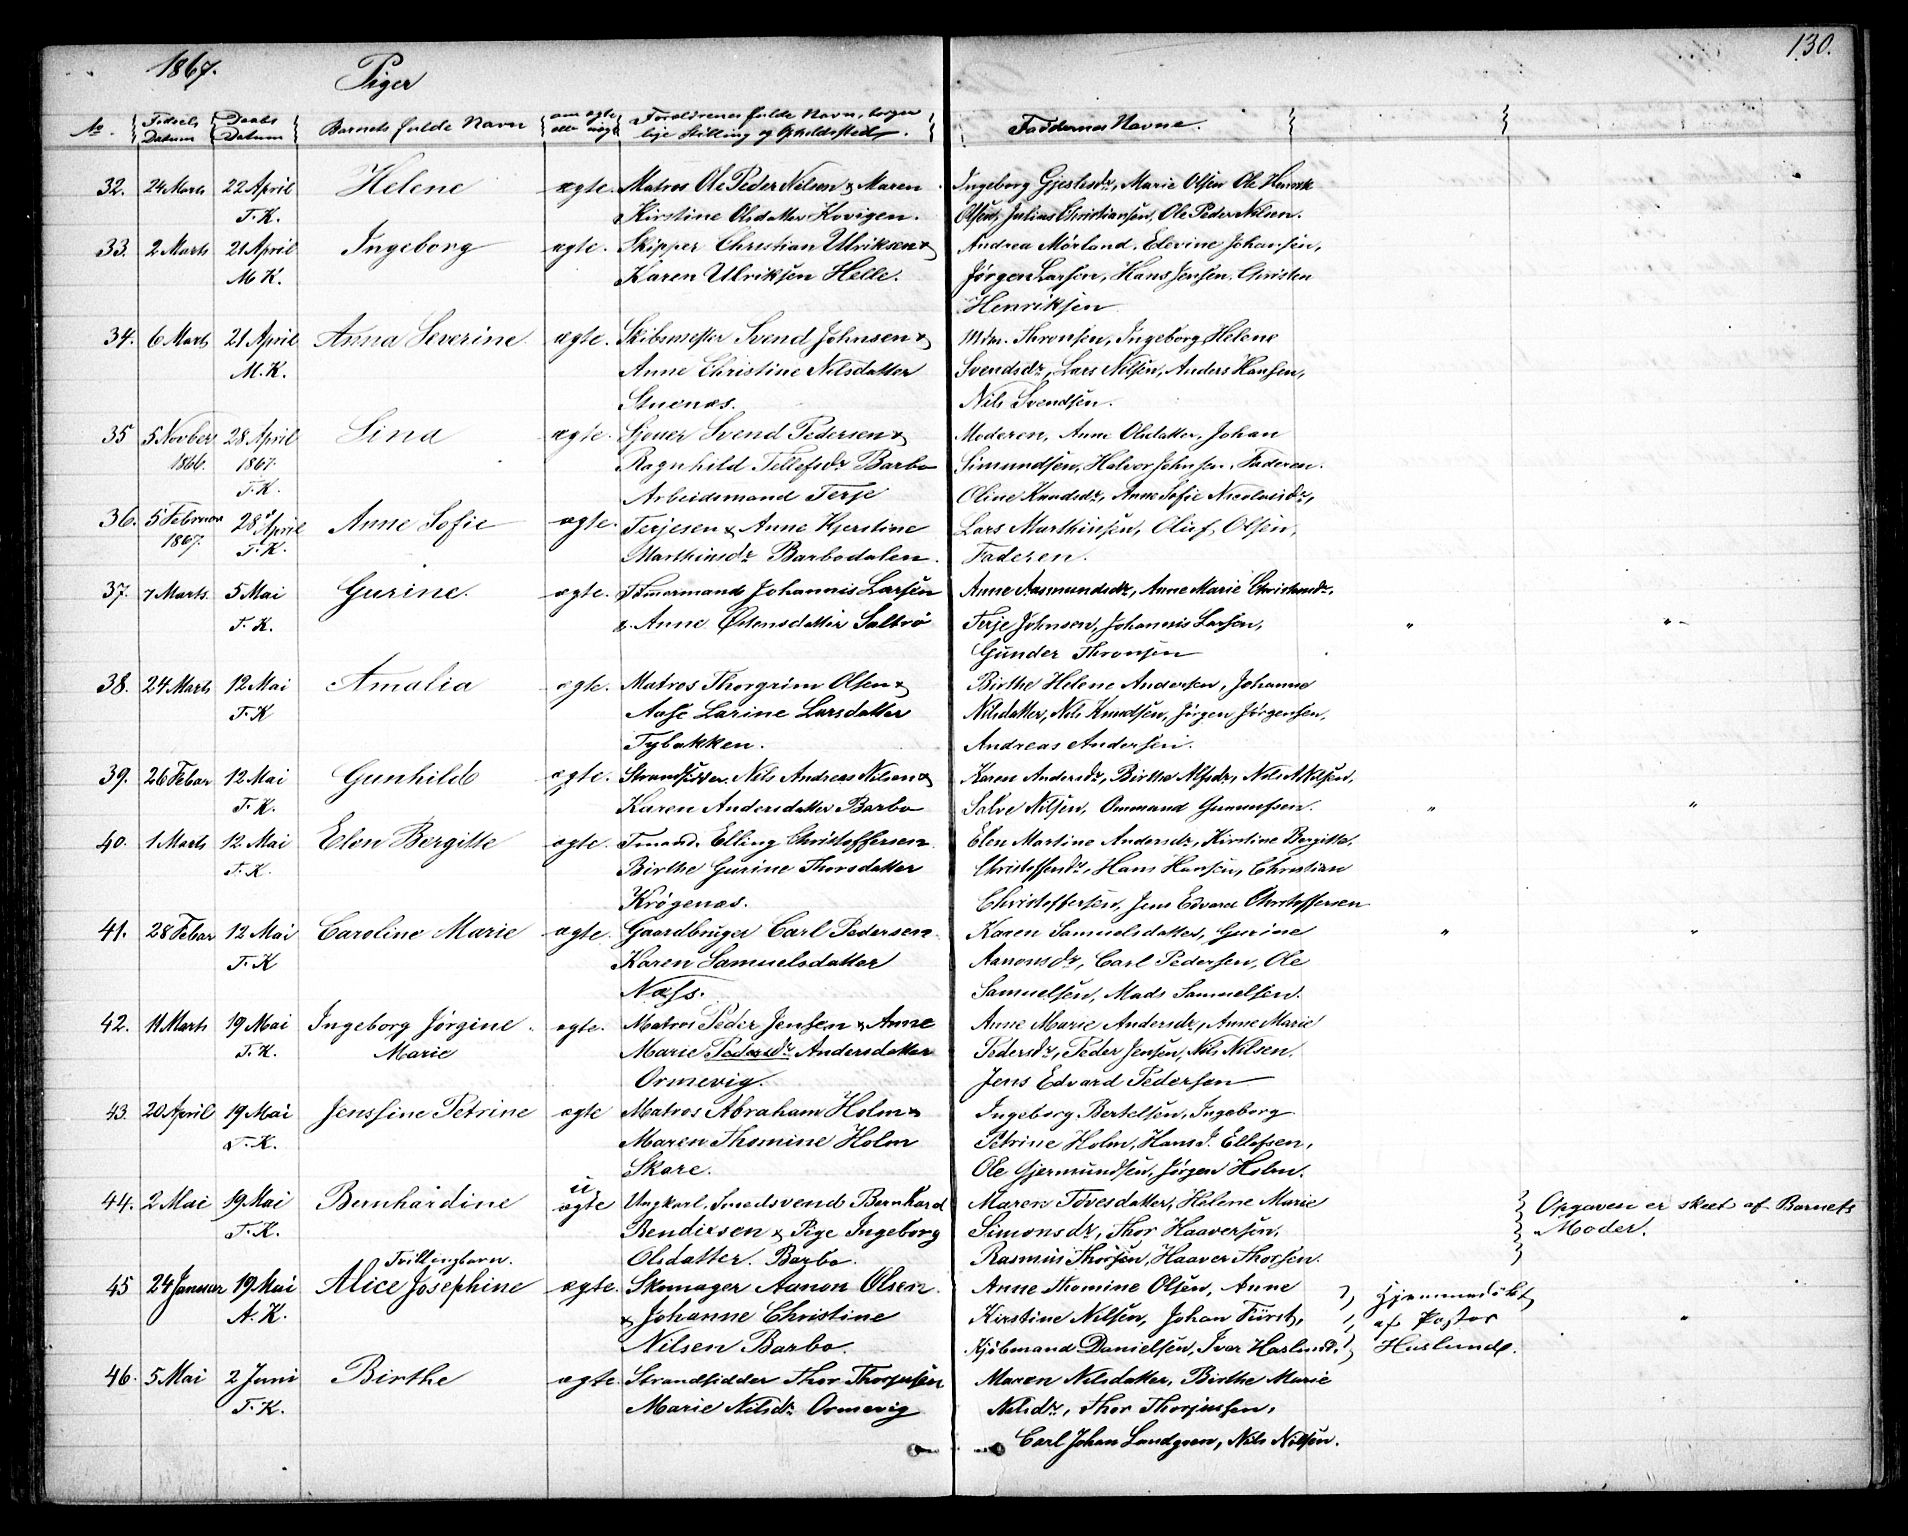 1867. Piger 130.
No. Fødsels Datum Daabs Datum Barnets fulde Navn om ægte eller uægte Forældrenes fulde Navn, borgerlige Stilling og Opholdssted. Faddernes Navne.
32. 24 Marts 22 April Helene ægte. Matros Ole Peder Nilsen & Maren Ingeborg Gjestesdr, Marie Olsen Ole Henrik
T. K. Kirstine Olsdatter Kovigen. Olsen, Julius Christiansen, Ole Peder Nilsen.
33. 2 Marts 21 April Ingeborg ægte. Skipper Christian Ulriksen & Andrea Mørland, Edevine Johansen,
M K. Karen Ulriksen Helle. Jørgen Larsen, Hans Jensen, Christen
Henriksen
34. 6 Marts 21 April Anna Severine ægte. Skibsmester Svend Johnsen & Mdm. Thronsen, Ingeborg Helene
M. K. Anne Christine Nilsdatter Svendsdr, Lars Nilsen, Anders Hansen,
Stuenæs. Nils Svendsen.
35 5 Novber 28 April Sina ægte. Sjouer Svend Pedersen & Moderen, Anne Olsdatter, Johan
1866. 1867. Ragnhild Tellefsdr Barbo Simundsen, Halvor Johnsen, Faderen.
T. K. Arbeidsmand Terje Oline Knudsdr, Anne Sofie Nicolaisdr,
36. 5 Februar 28 April Anne Sofie ægte Terjesen & Anne Kjerstine Lars Marthinsen, Oluf Olsen,
1867. T. K. Marthinsdr Barbodalen. Faderen.
37. 7 Marts 5 Mai Gurine. ægte. Tømmermand Johannis Larsen Anne Aasmundsdr, Anne Marie Christensdr,
T. K. & Anne Østensdatter Saltrø Terje Johnsen, Johannis Larsen, " "
Gunder Thronsen
38. 24 Marts 12 Mai Amalia ægte. Matros Thorgrim Olsen & Birthe Helene Andersen, Johanne
T. K Aase Larine Larsdatter Nilsdatter, Nils Knudsen, Jørgen Jørgensen,
Tybakken. Andreas Andersen.
39. 26 Febar 12 Mai Gunhild ægte. Strandsidder. Nils Andreas Nilsen & Karen Andersdr, Birthe Alfsdr, Nils Nilsen,
T. K. Karen Andersdatter Barbo Salve Nilsen, Ommund Gunnufsen. " "
40. 1 Marts 12 Mai Elen Bergitte ægte. Tmand. Elling Christoffersen Elen Martine Andersdr, Kirstine Bergitte,
T. K. Birthe Gurine Thorsdatter Christoffersdr, Hans Hansen, Christian
Krøgenæs. Christoffersen, Jens Edvard Christoffersen
41. 28 Febar 12 Mai Caroline Marie ægte. Gaardbruger Carl Pedersen Karen Samuelsdatter, Gurine " "
T. K Karen Samuelsdatter Aanonsdr, Carl Pedersen, Ole
Næss. Samuelsen, Mads Samuelsen.
42. 11 Marts 19 Mai Ingeborg Jørgine ægte. Matros Peder Jensen & Anne Anne Marie Andersdr, Anne Marie
T. K. Marie Marie Pedersdr Andersdatter Pedersdr, Peder Jensen, Nils Nilsen.
Ormevig. Jens Edvard Pedersen
43. 20 April 19 Mai Jenssine Petrine ægte Matros Abraham Holm & Ingeborg Bertelsen, Ingeborg
T. K. Maren Thomine Holm Petrine Holm, Hans J. Ellefsen,
Skare. Ole Gjermundsen, Jørgen Holm.
44. 2 Mai 19 Mai Bernhardine uægte Ungkarl, Smedsvend Bernhard Maren Tovesdatter, Helene Marie Opgaven er skeet af Barnets
T. K. Bendixsen & Pige Ingeborg Simonsdr, Thor Haaversen, Moder.
Trillingbarn. Olsdatter. Barbo. Rasmus Thorsen, Haaver Thorsen.
45 24 Januar 19 Mai Alice Josephine ægte. Skomager Aanon Olsen Anne Thomine Olsen, Anne Hjemmedøbt
A. K. & Johanne Christine Kirstine Nilsen, Johan Fürst, af Pastor "
Nilsen Barbo. Kjøbmand Danielsen, Iver Haslund. Haslund.
46. 5 Mai 2 Juni Birthe ægte. Strandsidder Thor Thorjussen Maren Nilsdatter, Birthe Marie
T. K. Marie Nilsdr Ormevig Nilsdr, Thor Thorjussen,
Carl Johan Lundgren, Nils Nilsen.